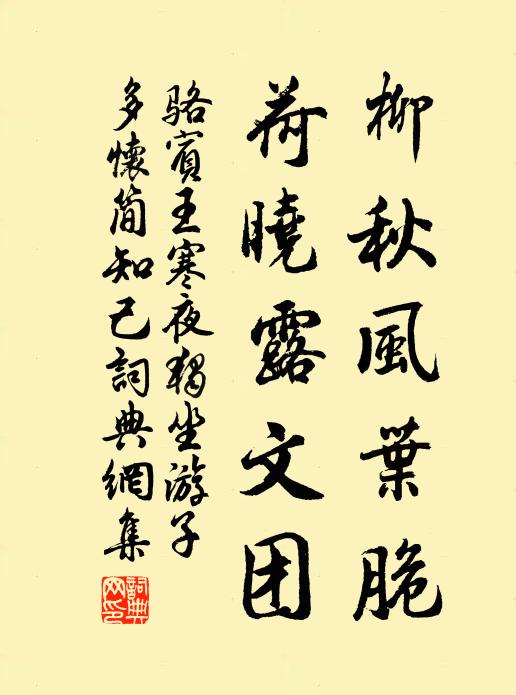 柳秋風葉脆
荷曉露文团
駱賓王寒夜獨坐游子
多懷簡知己詞典網集
詞典網印